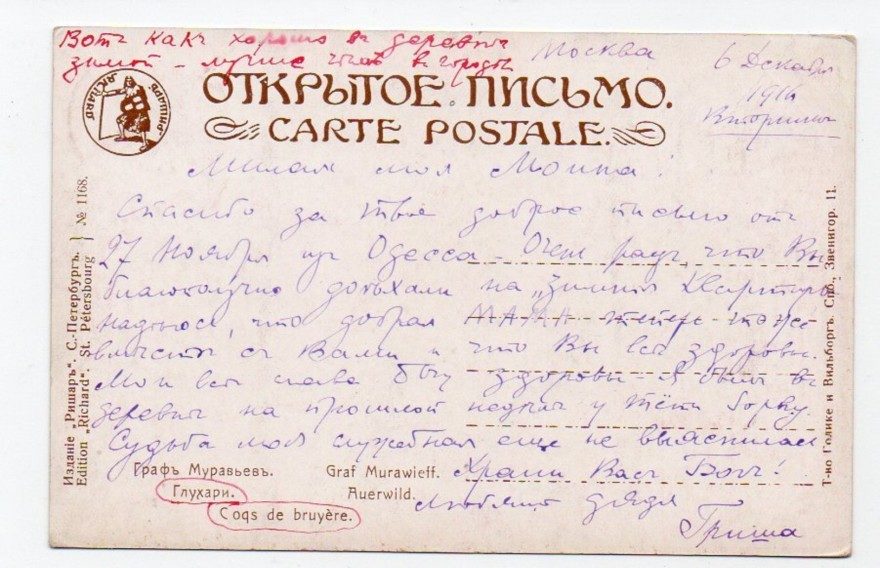 Вотъ какъ хорошо въ деревнѣ
зимой - лучше чѣмъ в городѣ
Москва
6 Декабря
1916
Вторникъ
РИШАРЪ RICHARD
ОТКРЫТОЕ ПИСЬМО.
CARTE POSTALE.
Милая моя !
Спасибо за твое доброе письмо отъ
27 Ноября изъ Одесса - Очень радъ, что Вы
благополучно доѣхали на „зимнія Квартиры
надѣюсь, что добрая МАМА теперь тоже
вмѣстѣ съ Вами и что Вы всѣ здоровы.
Мои всѣ слава Богу здоровы - Я былъ въ
деревнѣ на прошлой недѣлѣ у тёти
Судьба моя служебная еще не выяснилась
Храни Васъ Богъ!
Любящій дядя
Гриша
Графъ Муравьевъ. Graf Murawieff.
Глухари. Auerwild.
Coqs de bruyère.
Изданіе „Ришаръ“. С.-Петербургъ. } № 1168.
Edition „Richard“. St. Pétersbourg
Т-во Голике и Вильборгъ. Спб., Звенигор. 11.